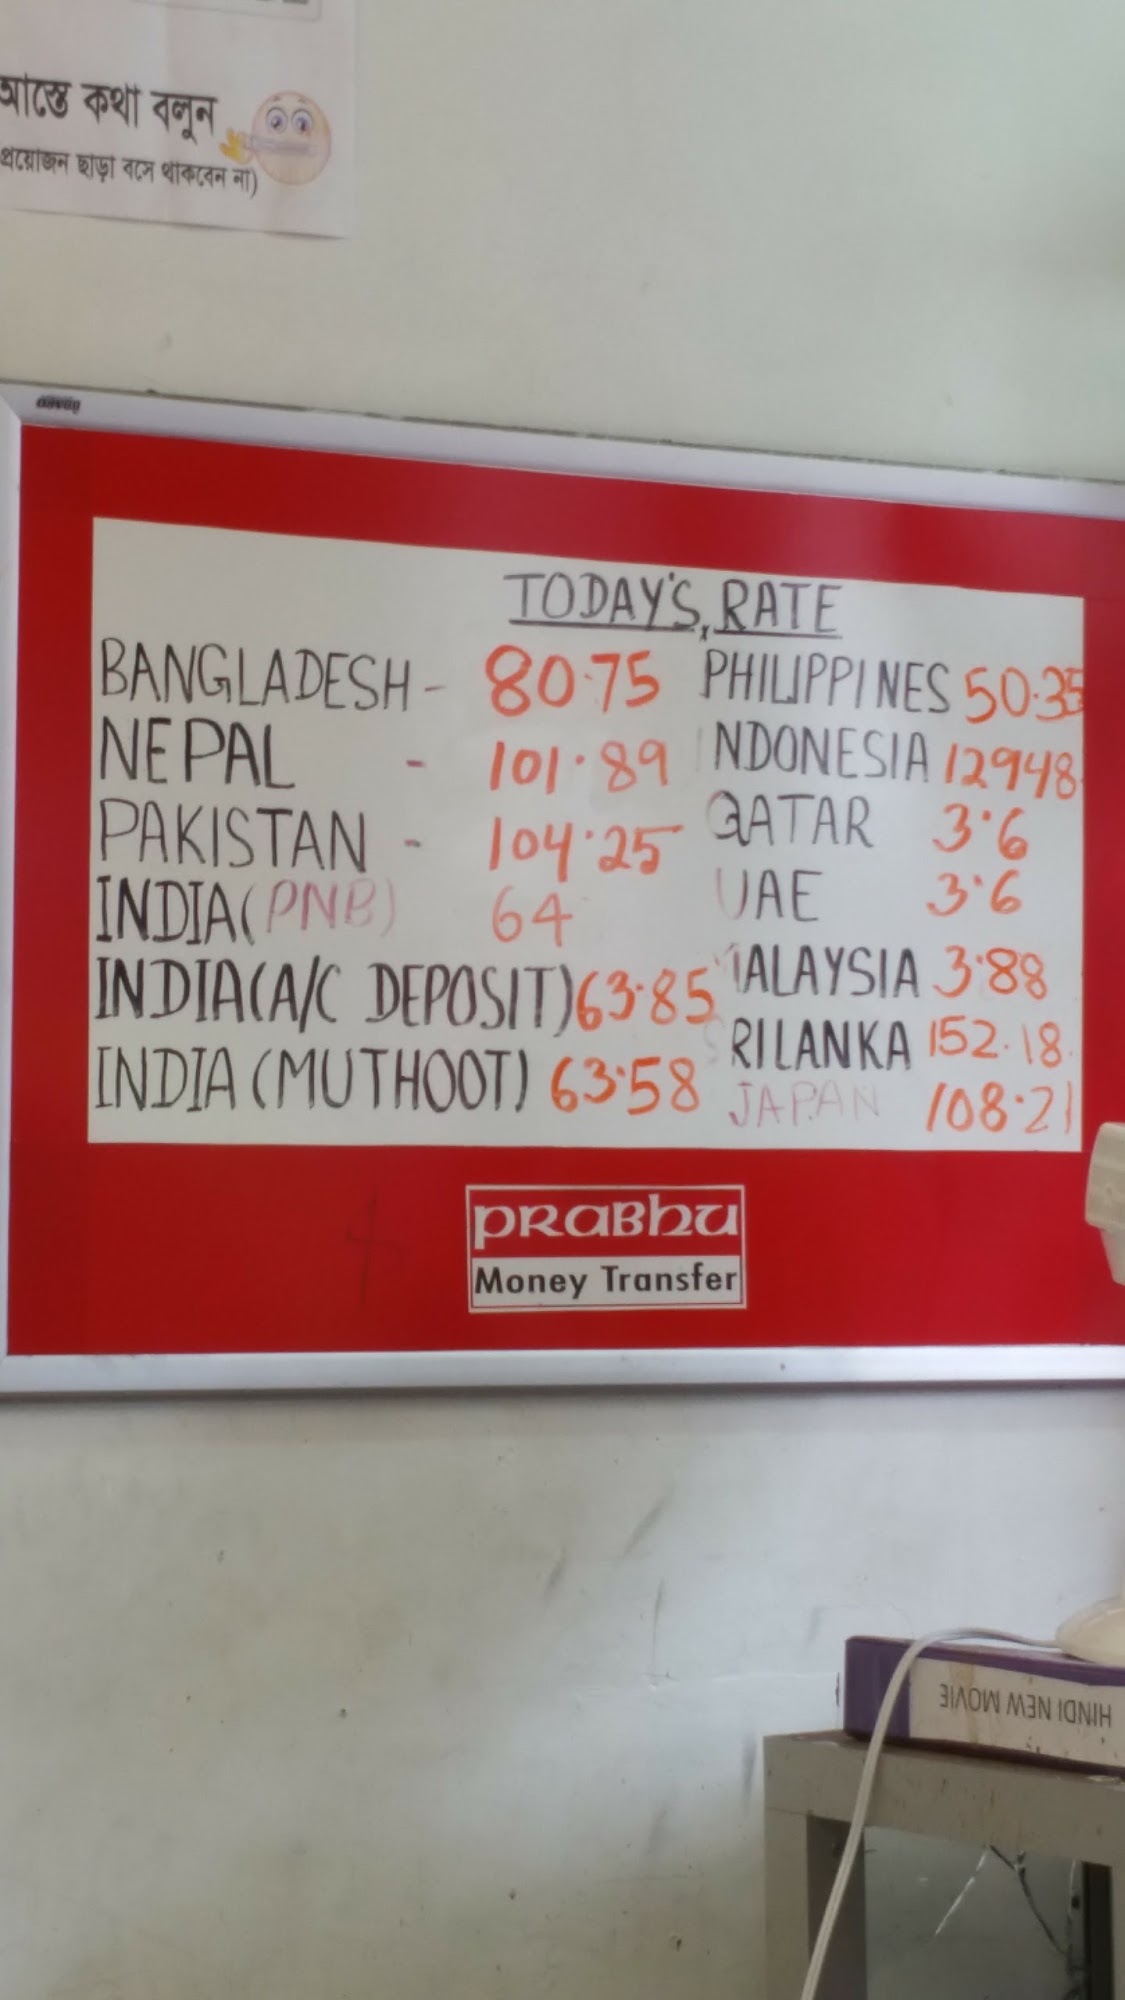 আস্তে কথা বলুন
প্রয়োজন ছাড়া বসে থাকবেন না)
TODAY'S RATE
BANGLADESH - 80.75
NEPAL - 101.89
PAKISTAN - 104.25
INDIA (PNB) 64
INDIA (A/C DEPOSIT) 63.85
INDIA (MUTHOOT) 63.58
PHILIPPINES 50.35
INDONESIA 12948
QATAR 3.6
UAE 3.6
MALAYSIA 3.88
SRILANKA 152.18
JAPAN 108.21
PRABHU
Money Transfer
HINDI NEW MOVIE